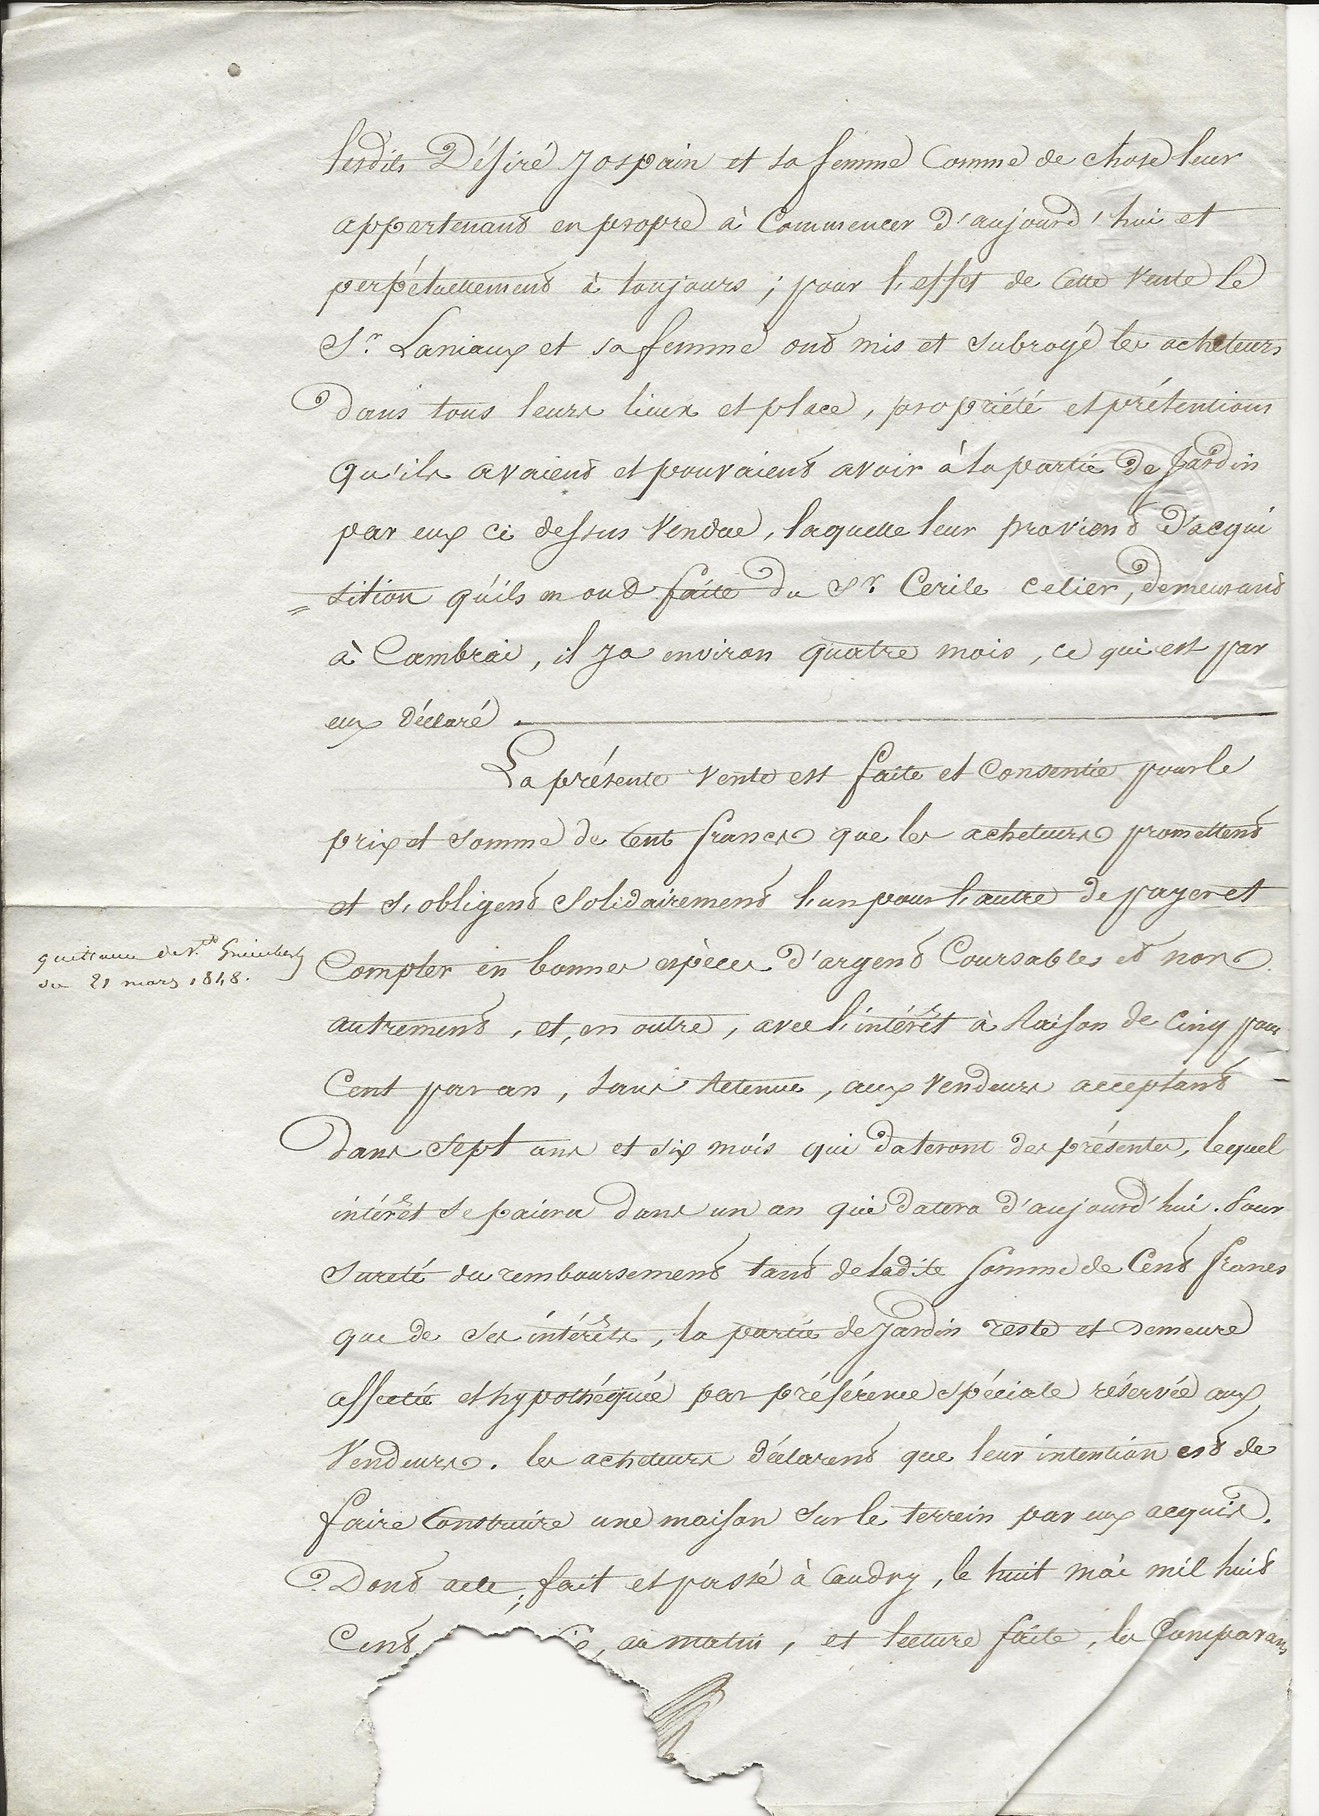 lesdits Désiré Jospain et sa femme Comme de chose leur
appartenant en propre à Commencer d'aujourd'hui et
perpétuellement à toujours ; pour l'effet de Cette Vente le
Sr. Laniaux et sa femme ont mis et subrogé les acheteurs
Dans tous leurs lieux et place, propriété et prétentions
qu'ils avaient et pouvaient avoir à la partie de Jardin
par eux ci dessus Vendue, laquelle leur provient D'acqui
= sition qu'ils en ont faite du Sr. Cerile Celier, demeurant
à Cambrai, il y a environ quatre mois, ce qui est par
eux Déclaré
La présente Vente est faite et Consentie pour le
prix et Somme de Cent francs que les acheteurs promettent
et s'obligent Solidairement l'un pour l'autre de payer et
quittance de
du 21 mars 1848.
Compter en bonnes espèces d'argent Coursables et non
autrement, et, en outre, avec l'intérêt à Raison de Cinq pour
Cent par an, Sans Retenue, aux Vendeurs acceptant
Dans Sept ans et Six mois qui Dateront des présentes, lequel
intérêt se paiera Dans un an qui Datera d'aujourd'hui. Pour
Sureté du remboursement tant de ladite Somme de Cent francs
que de ses intérêts, la partie de Jardin reste et Demeure
affectée et hypothéquée par préférence spéciale réservée aux
Vendeurs. les acheteurs Déclarent que leur intention est de
faire Construire une maison Sur le terrein par eux acquis.
Dont acte ; fait et passé à Caudry, le huit mai mil huit
Cent au matin, et lecture faite, les Comparans